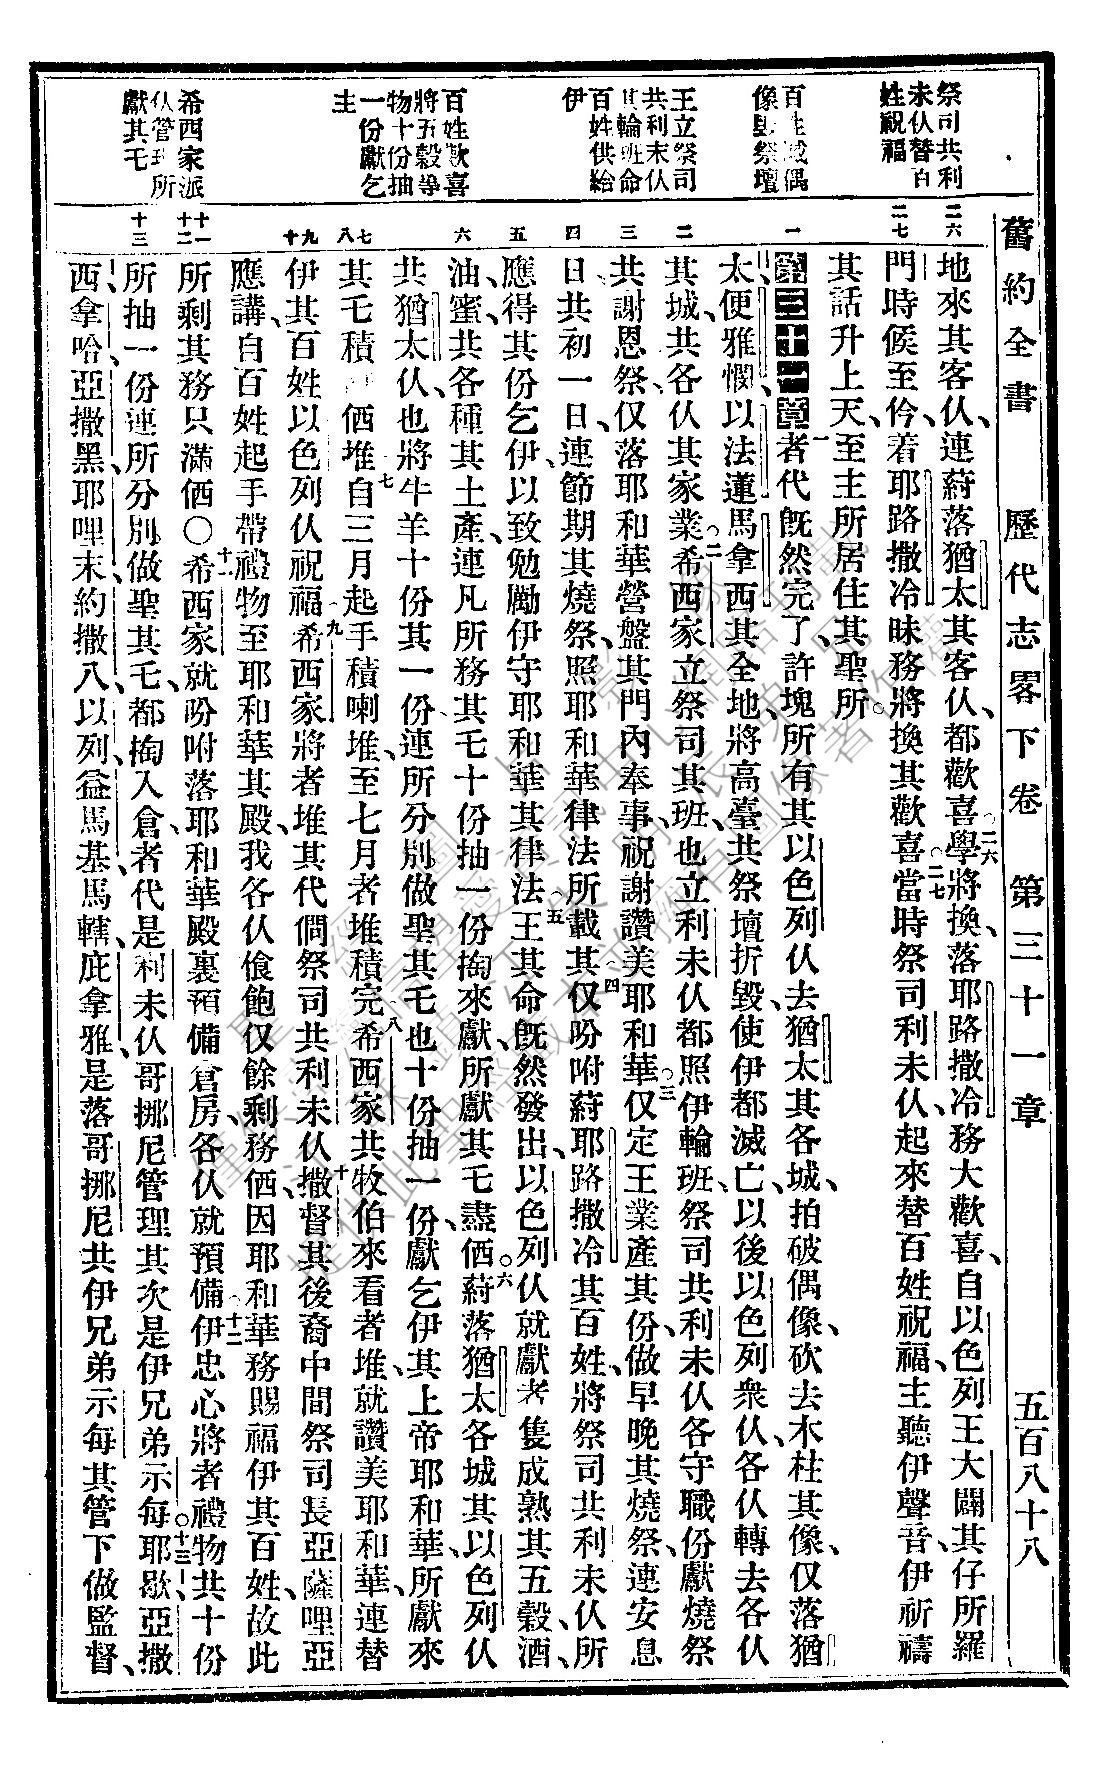 舊約全書　歷代志畧下卷　第三十一章　五百八十八
祭司共利
未仈替百
姓祝福
百姓滅偶
像毀祭壇
王立祭司
共利未仈
其輪班命
百姓供給
伊
百姓歡喜
將五穀等
物十份抽
一份獻乞
主
希西家派
仈管理所
獻其乇
二六
二七
一
二
三
四
五
六
七
八
九
十
十一
十二
十三
地來其客仈、連蒔落猶太其客仈、都歡喜。二六學將換、落耶路撒冷務大歡喜、自以色列王大闢其仔所羅
門時候至仱、着耶路撒冷昧務將換其歡喜。二七當時祭司利未仈、起來替百姓祝福、主聽伊聲音、伊祈禱
其話升上天、至主所居住其聖所。
第三十一章一者代旣然完了、許塊所有其以色列仈去猶太其各城、拍破偶像、砍去木柱其像、仅落猶
太、便雅憫、以法蓮、馬拿西其全地、將高臺共祭壇折毀、使伊都滅亡、以後以色列衆仈、各仈轉去各仈
其城、共各仈其家業。二希西家立祭司其班、也立利未仈都照伊輪班、祭司共利未仈各守職份、獻燒祭
共謝恩祭、仅落耶和華營盤其門內奉事、祝謝讚美耶和華。三仅定王業產其份、做早晚其燒祭、連安息
日共初一日、連節期其燒祭、照耶和華律法所載其。四仅吩咐蒔耶路撒冷其百姓、將祭司共利未仈所
應得其份乞伊、以致勉勵伊守耶和華其律法。五王其命旣然發出、以色列仈就獻者隻成熟其五穀、酒、
油、蜜、共各種其土產、連凡所務其乇十份抽一份掏來獻、所獻其乇盡俹。六蒔落猶太各城其以色列仈
共猶太仈也將牛羊十份其一份、連所分別做聖其乇也十份抽一份、獻乞伊其上帝耶和華、所獻來
其乇積俹堆。七自三月起手積喇堆、至七月者堆積完。八希西家共牧伯來看者堆、就讚美耶和華、連替
伊其百姓以色列仈祝福。九希西家將者堆其代、僴祭司共利未仈。十撒督其後裔中間祭司長亞薩哩亞
應講、自百姓起手帶禮物至耶和華其殿、我各仈飧飽、仅餘剩務俹、因耶和華務賜福伊其百姓、故此
所剩其務只滿俹○十一希西家就吩咐落耶和華殿裏預備倉房、各仈就預備。十二伊忠心將者禮物共十份
所抽一份連所分別做聖其乇、都掏入倉、者代是利未仈哥挪尼管理、其次是伊兄弟示每。十三耶歇、亞撒
西拿哈、亞撒黑、耶哩末、約撒八、以列、益馬基、馬轄、庇拿雅、是落哥挪尼共伊兄弟示每其管下做監督、